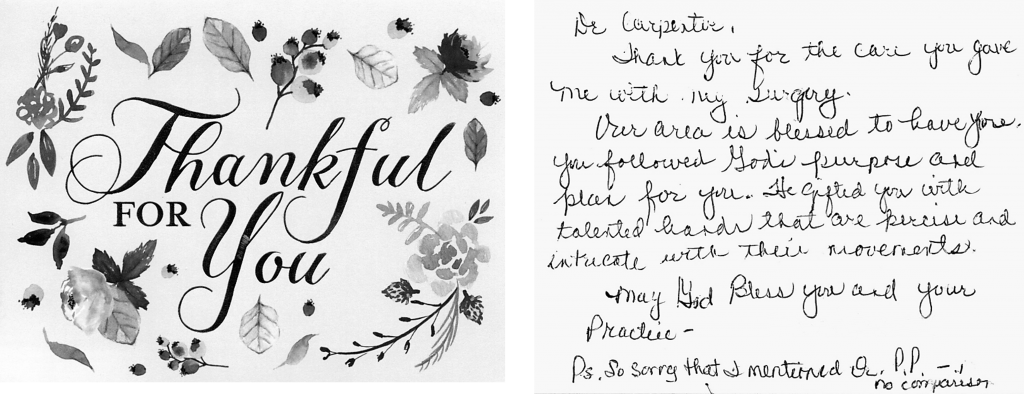 Thankful
FOR
You
Dr Carpenter,
Thank you for the care you gave
me with my Surgery.
Our area is blessed to have you.
you followed God's purpose and
plan for you. He gifted you with
talented hands that are percise and
intricate with their movements.
May God Bless you and your
Practice -
Ps. So sorry that I mentioned Dr. P.P. -
no comparison